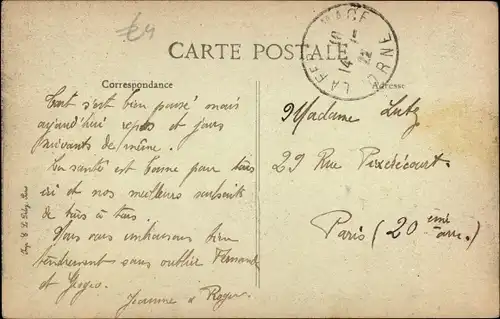 CARTE POSTALE
LA FERTE MACE
ORNE
22
Correspondance
Adresse
Tout s'est bien passé mais
aujourd'hui repos et jours
suivants de même.
La santé est bonne pour tous
ici et nos meilleurs souhaits
de tous à tous.
Nous vous embrassons bien
tendrement sans oublier Fernande
et
Jeanne & Roger
Madame Lutz
29 Rue Pixérécourt
Paris (20 eme
arr.)